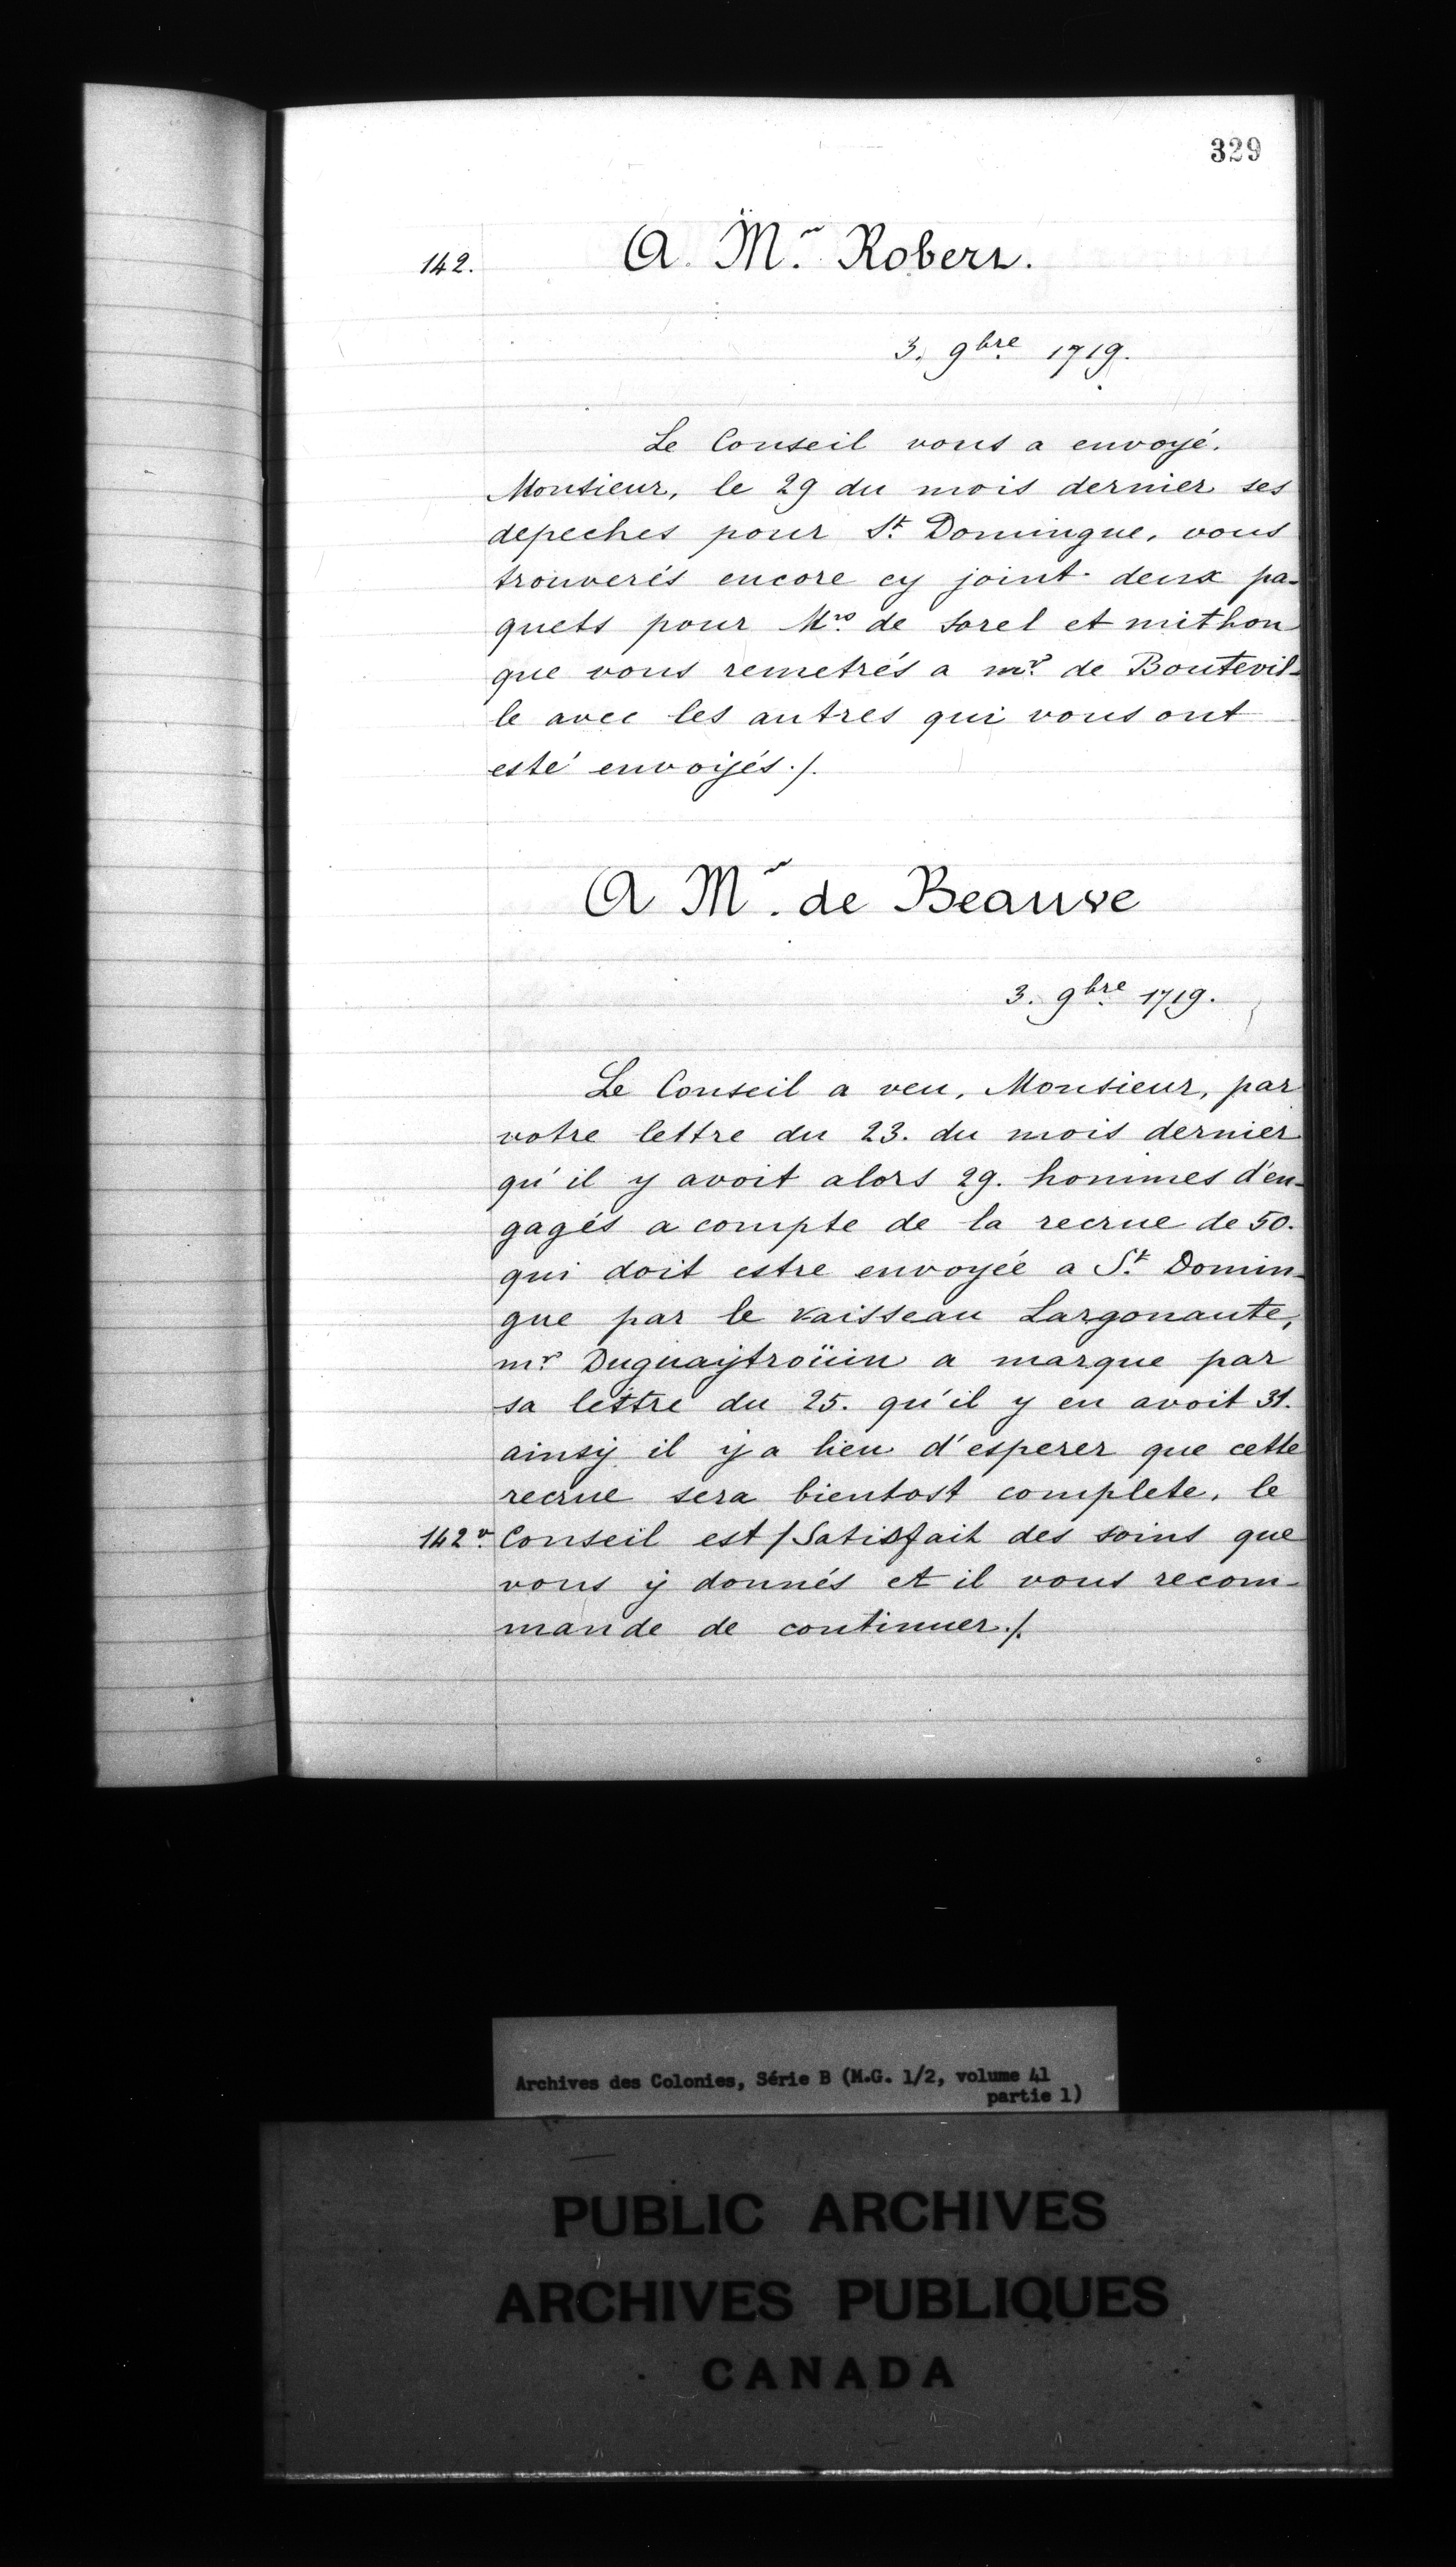 329
142. A. Mr. Robert.
3. 9bre 1719.
Le Conseil vous a envoyé.
Monsieur, le 29 du mois dernier ses
depeches pour St. Domingue, vous
trouverés encore cy joint deux pa-
quets pour Mrs. de Sorel et mithon
que vous remetrés a mr. de Boutevil-
le avec les autres qui vous ont
esté envoÿés./.
A Mr. de Beauve
3. 9bre 1719.
Le Conseil a veu, Monsieur, par
votre lettre du 23. du mois dernier
qu'il y avoit alors 29. hommes d'en-
gagés a compte de la recrue de 50.
qui doit estre envoyée a St. Domin-
gue par le vaisseau Largonaute,
mr. Duguaÿtroüin a marque par
sa lettre du 25. qu'il y en avoit 31.
ainsÿ il ÿ a lieu d'esperer que cette
recrue sera bientost complete, le
142v. Conseil est / Satisfait des soins que
vous ÿ donnés et il vous recom-
mande de continuer./.
Archives des Colonies, Série B (M.G. 1/2, volume 41
partie 1)
PUBLIC ARCHIVES
ARCHIVES PUBLIQUES
CANADA